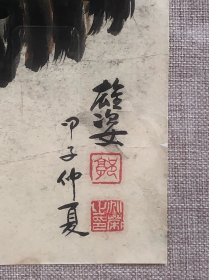 雄姿
甲子仲夏